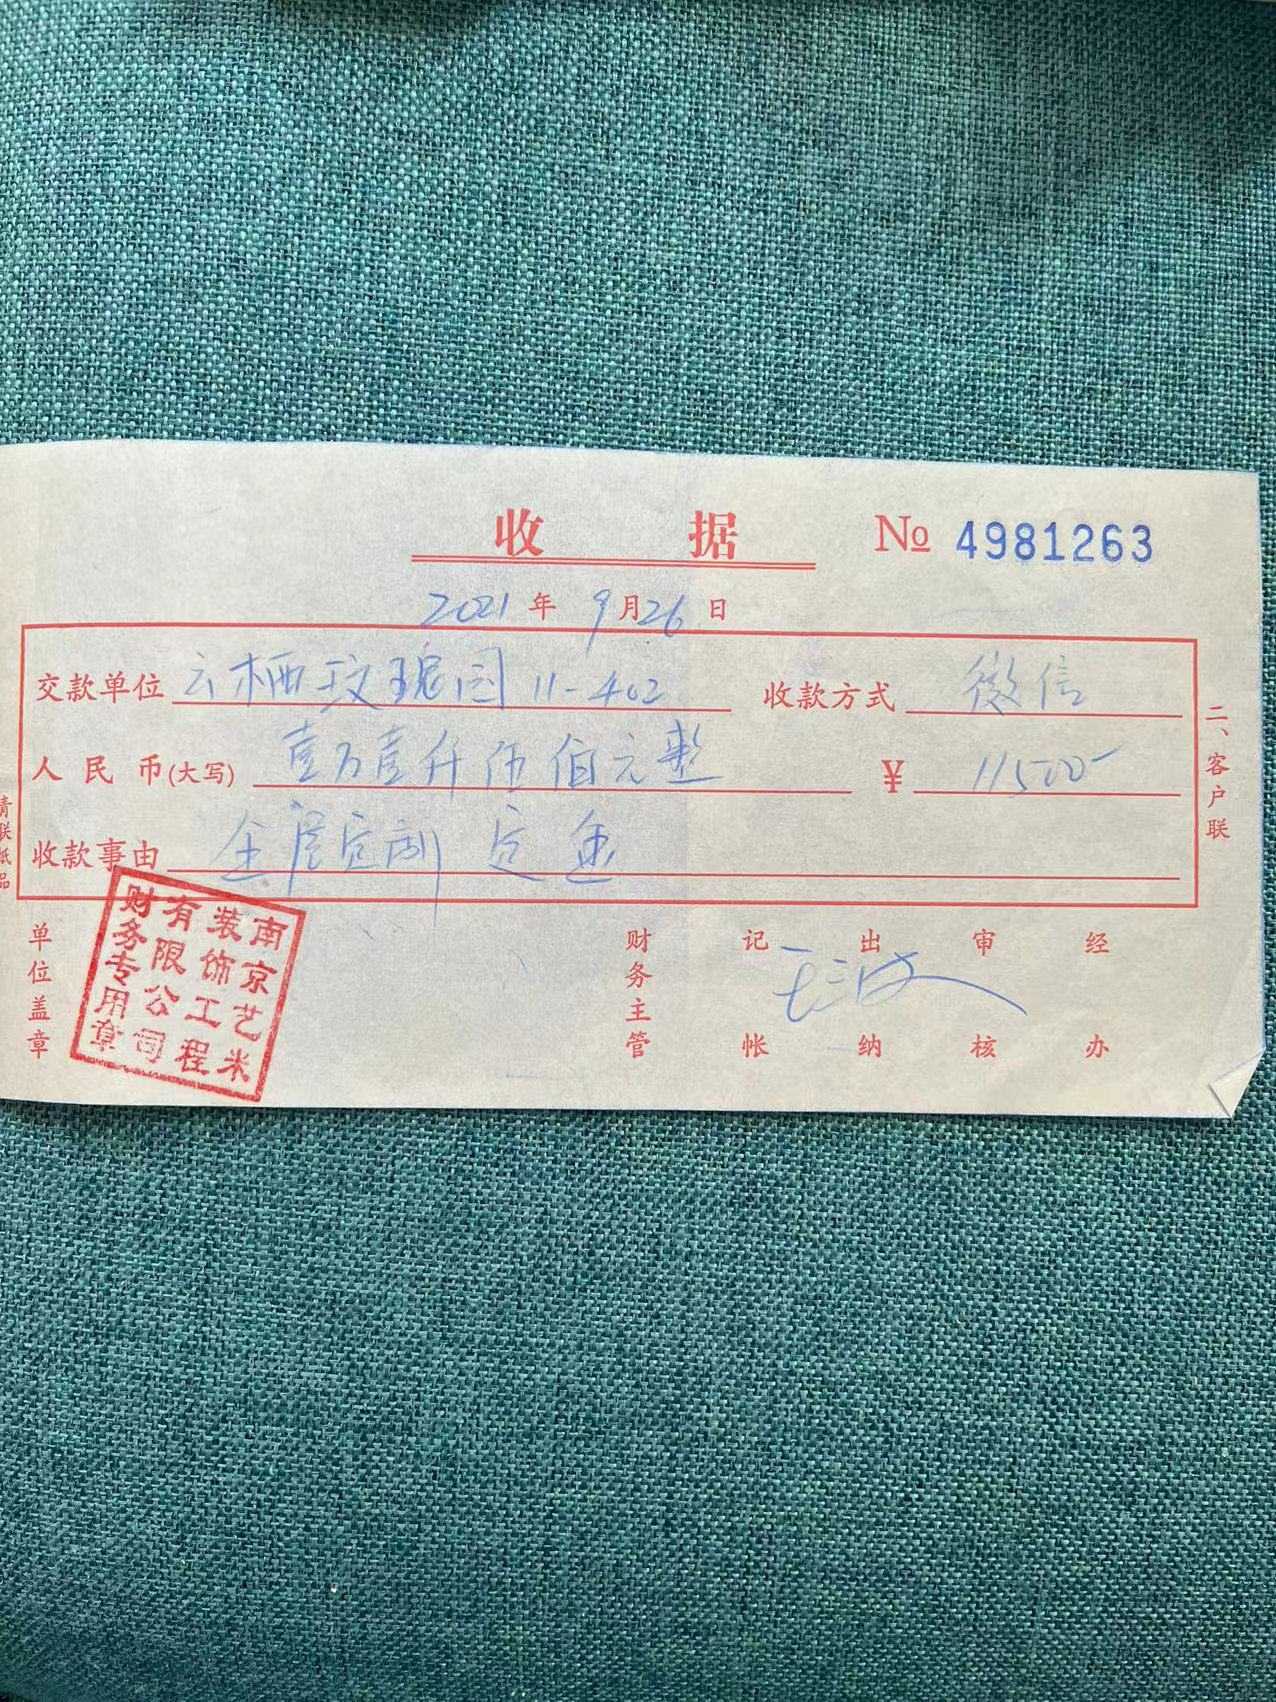 收 据 № 4981263
2021 年 9 月 26 日
交款单位 云栖玫瑰园 11-402 收款方式 微信
人民币(大写) 壹万壹仟伍佰元整 ¥ 11500-
收款事由 全屋定制 定金
二、客户联
单位盖章
财务主管 记帐 出纳 审核 经办
南京艺米
装饰工程
有限公司
财务专用章